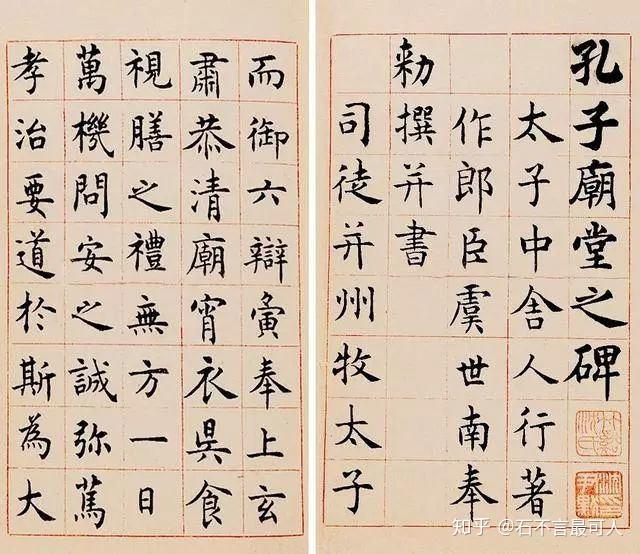 孔子廟堂之碑
太子中舍人行著
作郎臣虞世南奉
勑撰并書
司徒并州牧太子
而御六辯寅奉上玄
肅恭清廟宵衣昃食
視膳之禮無方一日
萬機問安之誠弥篤
孝治要道於斯為大
知乎 @石不言最可人